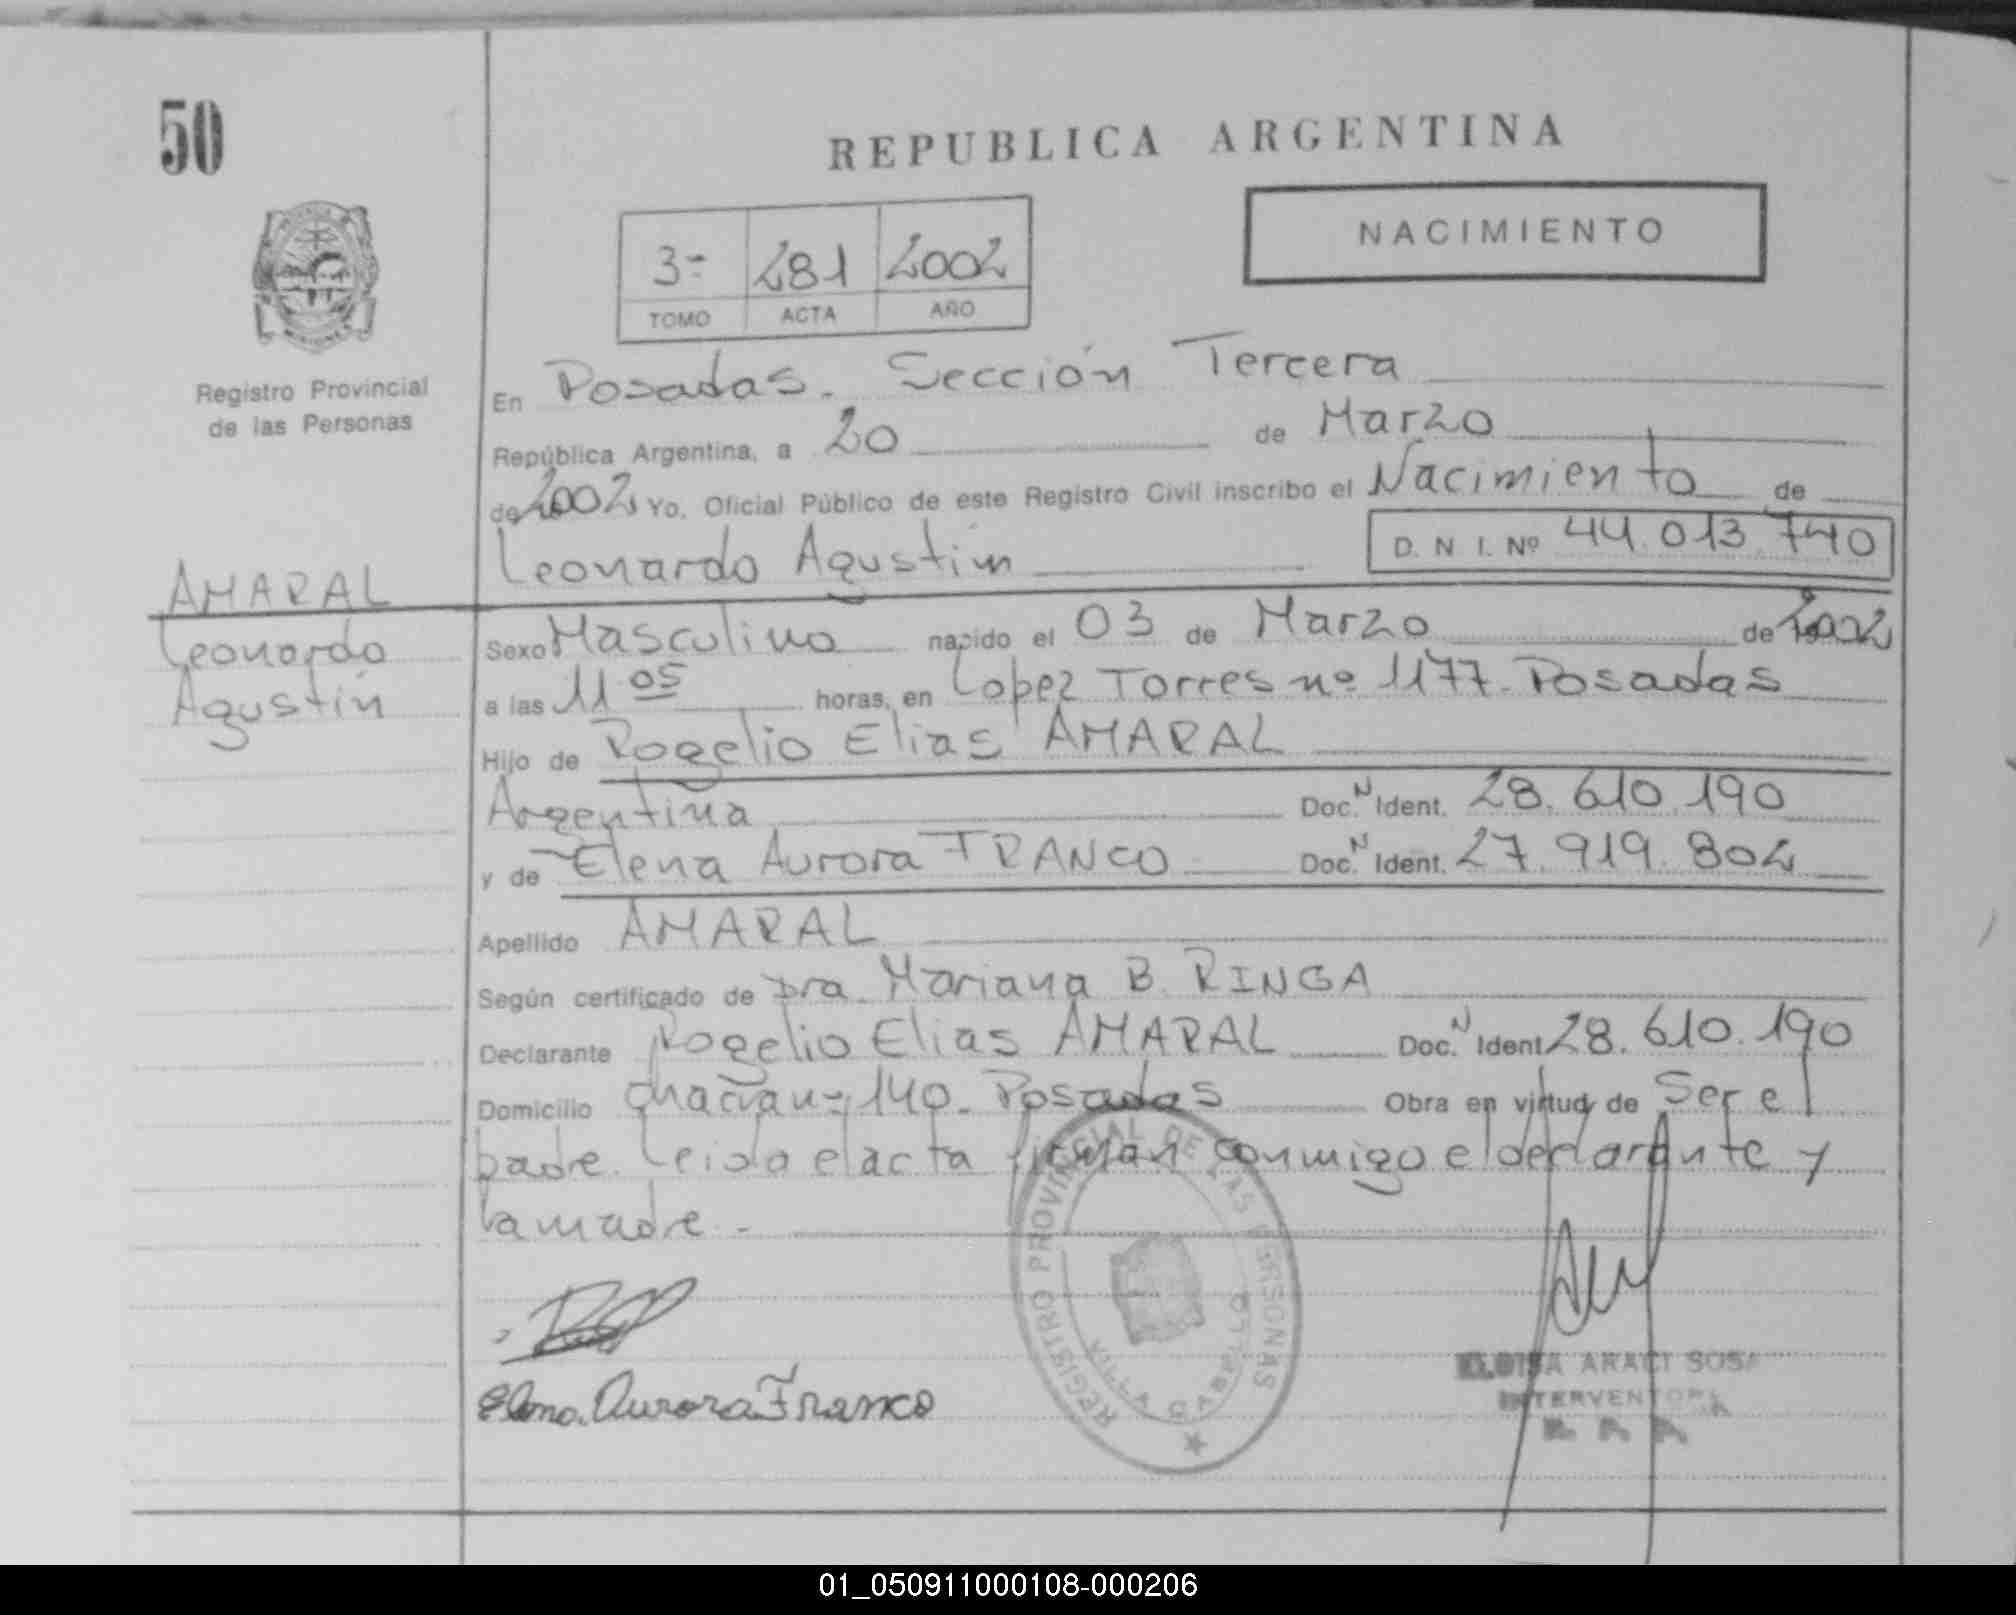 50
REPUBLICA ARGENTINA
NACIMIENTO
3= 281 2002
TOMO ACTA AÑO
Registro Provincial
de las Personas
En Posadas. Sección Tercera
República Argentina, a 20 de Marzo
de 2002 Yo, Oficial Público de este Registro Civil inscribo el Nacimiento de
Leonardo Agustín D. N I. Nº 44.013.740
AMARAL
Leonardo
Agustín
Sexo Masculino nacido el 03 de Marzo de 2002
a las 11 05 horas, en Lopez Torres nº 1177. Posadas
Hijo de Rogelio Elias AMARAL
Argentina Doc. N Ident. 28.610.190
y de Elena Aurora FRANCO Doc. N Ident. 27.919.802
Apellido AMARAL
Según certificado de Dra. Mariana B. RINGA
Declarante Rogelio Elias AMARAL Doc. N Ident 28.610.190
Domicilio 140. Posadas Obra en virtud de Ser el
padre. Leida el acta firman conmigo el declarante y
la madre.-
REGISTRO PROVINCIAL DE LAS PERSONAS
VILLA CABELLO
Elena Aurora Franco
ELOISA ARACI SOSA
INTERVENTORA
01_050911000108-000206